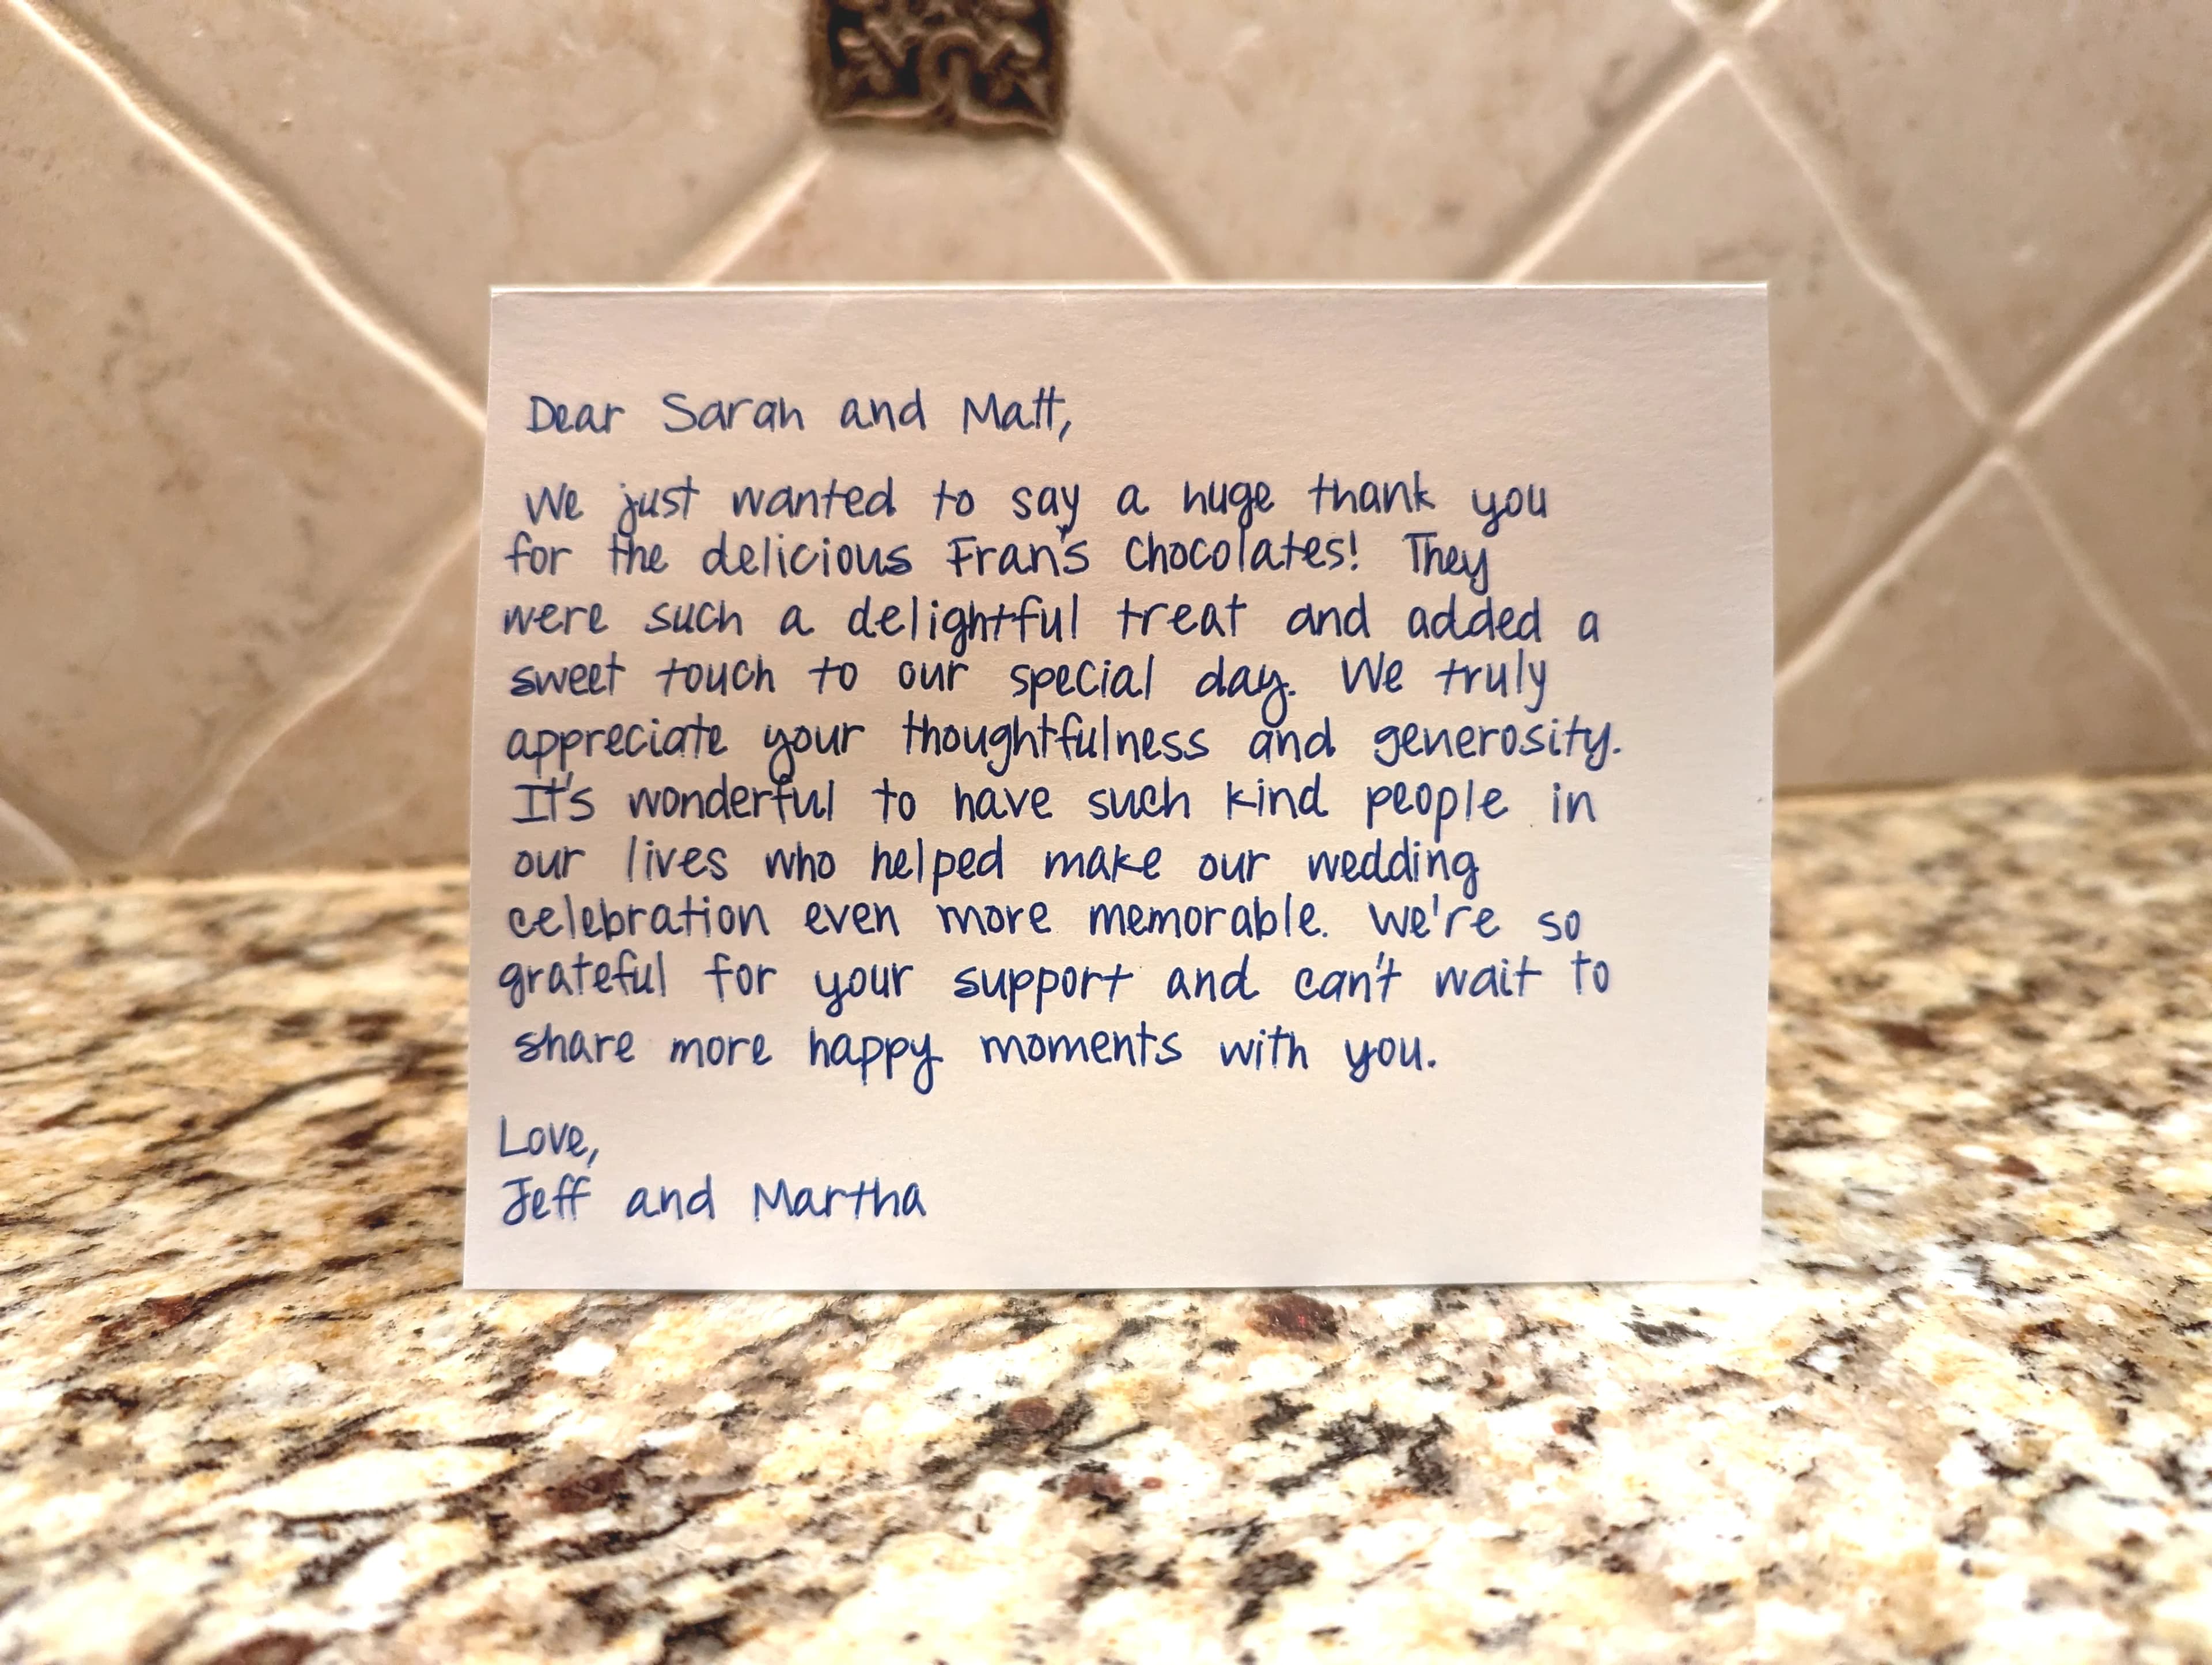 Dear Sarah and Matt,
We just wanted to say a huge thank you
for the delicious Fran's Chocolates! They
were such a delightful treat and added a
sweet touch to our special day. We truly
appreciate your thoughtfulness and generosity.
It's wonderful to have such kind people in
our lives who helped make our wedding
celebration even more memorable. We're so
grateful for your support and can't wait to
share more happy moments with you.
Love,
Jeff and Martha